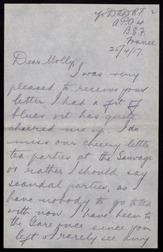 A.P.O 4
B.E.F.
France
25/4/17.
Dear Molly,
I was very
pleased to receive your
letter I had a fit of
blues but has quite
cheered me up. I do
miss our cheery little
tea parties at the
or rather I should say
scandal parties, as I
have nobody to go to tea
with now. I have been to
the since you
left & rarely see him